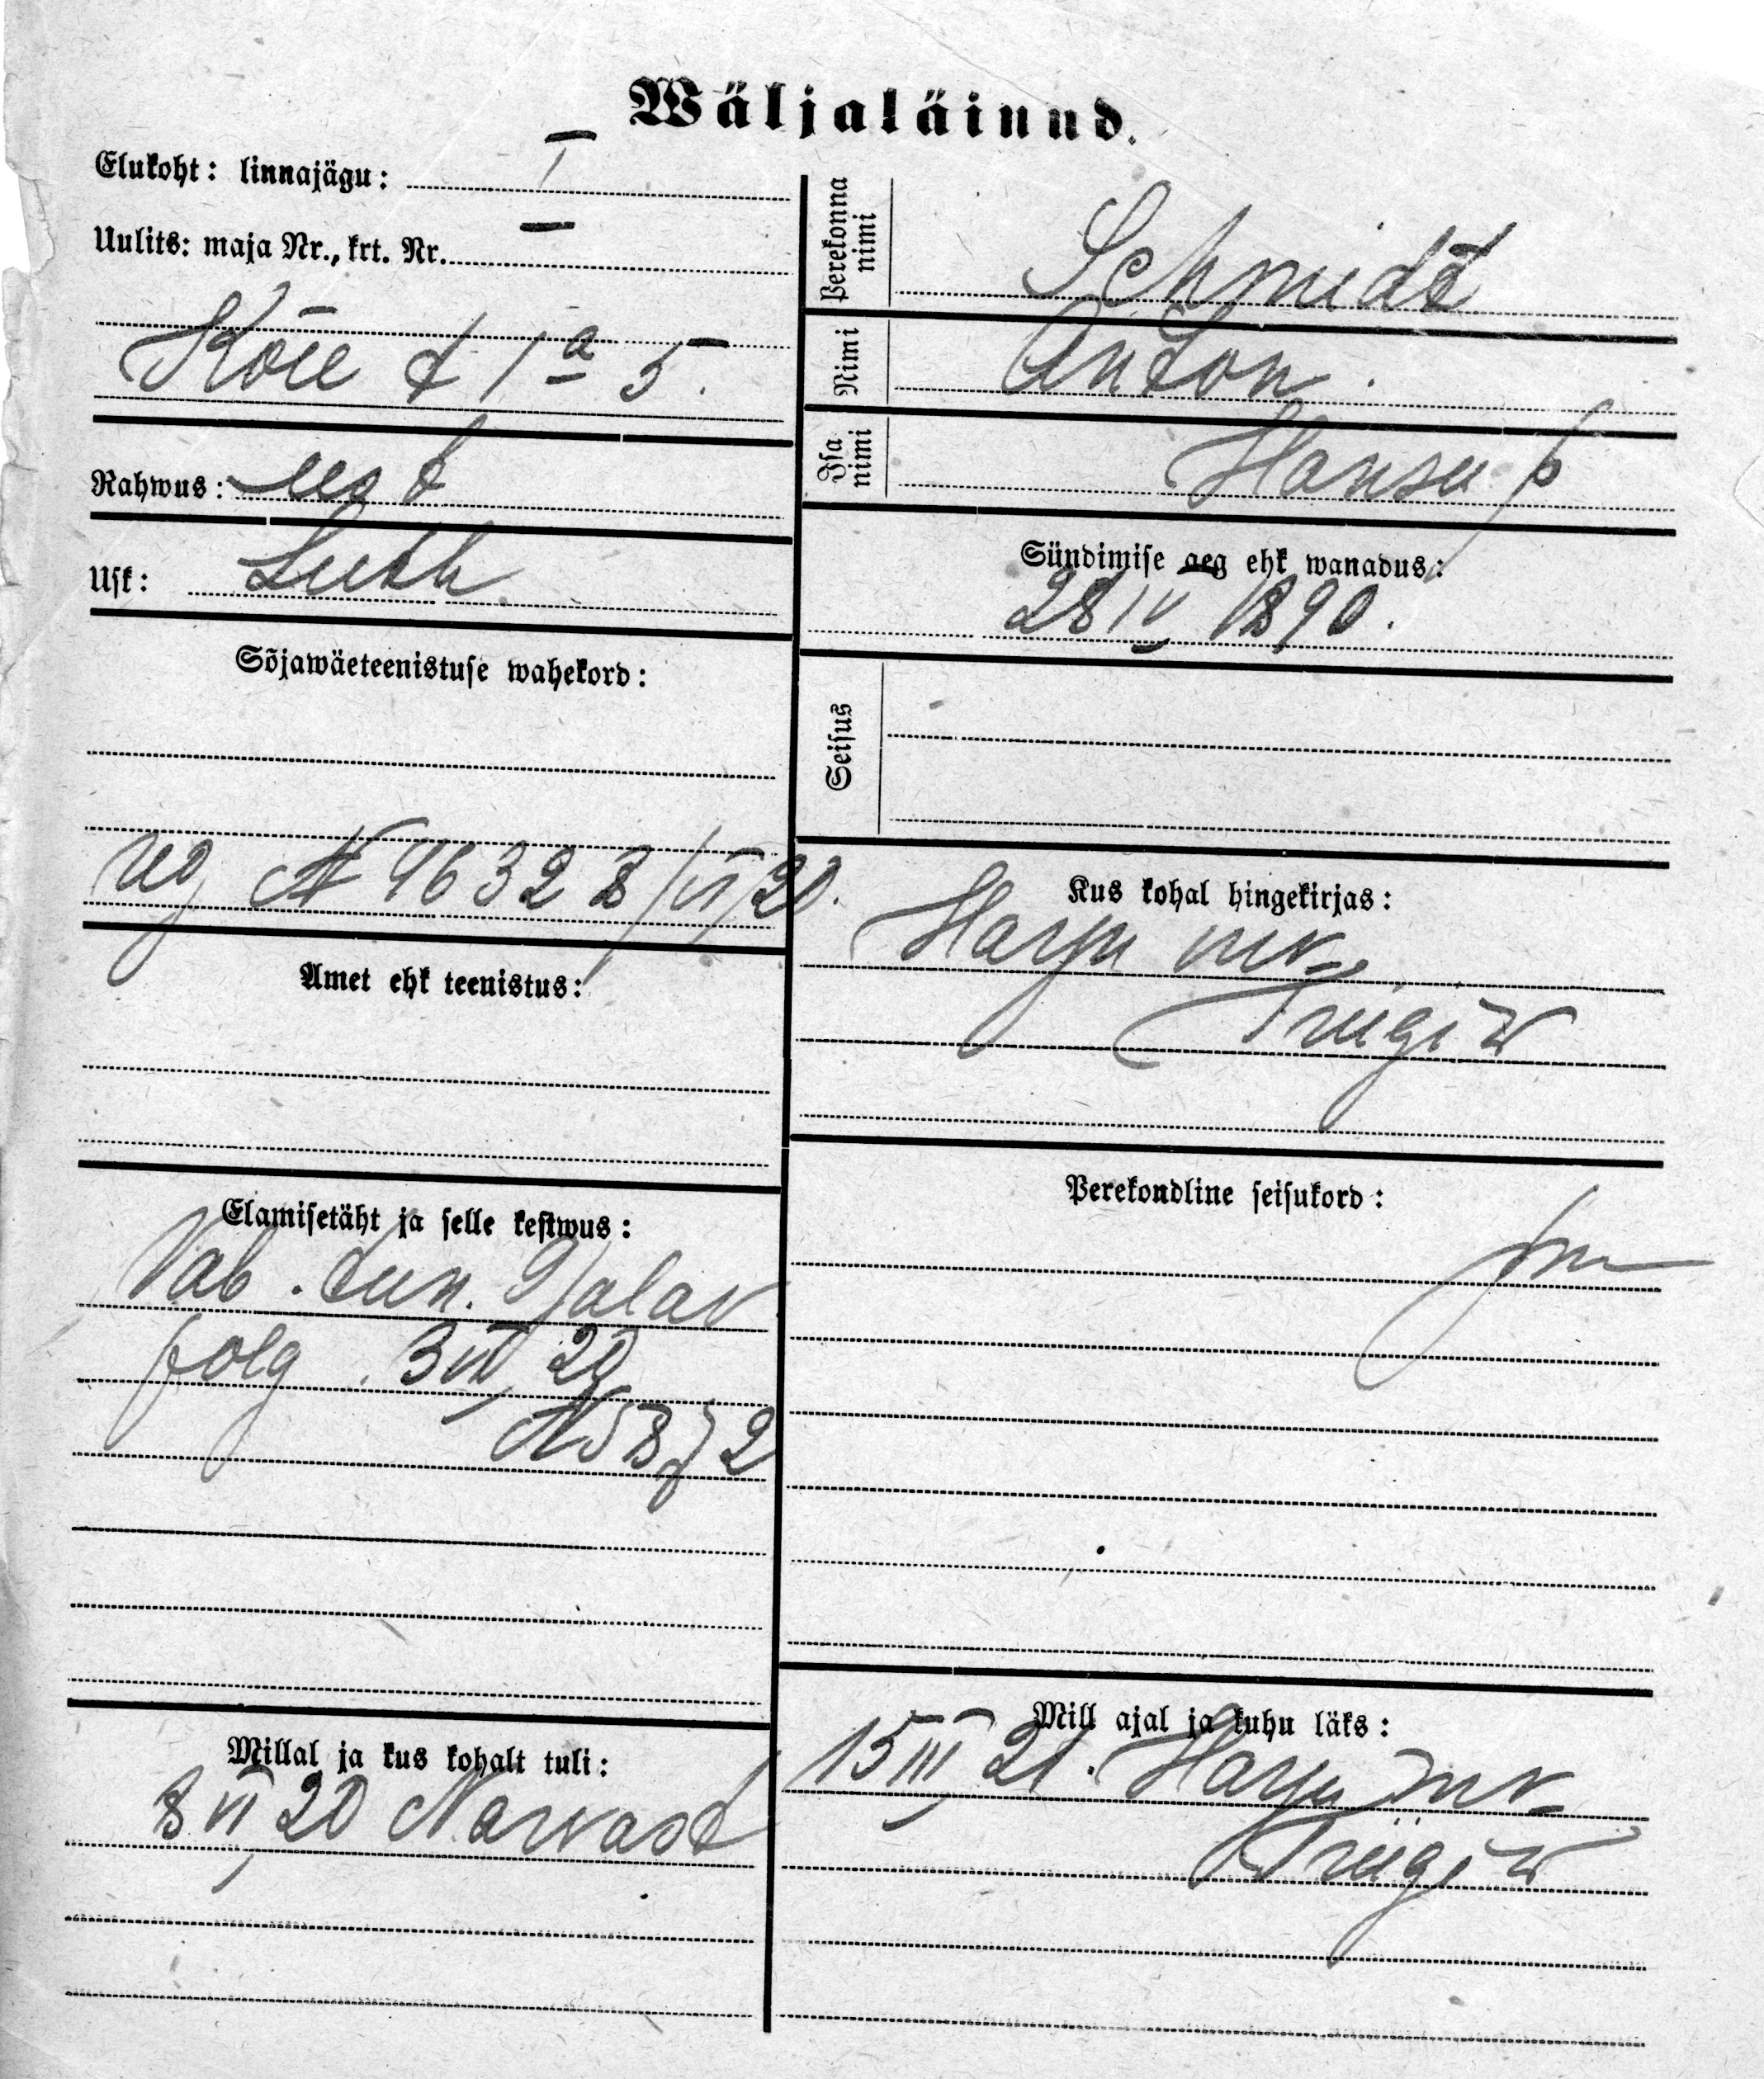 Wäljaläinud.
Elukoht: linnajägu: I
Uulits: maja Nr., krt. Nr.
Köie t 1a 5.
Rahwus: eest
Usk: Luth
Sõjawäeteenistuse wahekord:
reg № 4632 8/VI 20.
Amet ehk teenistus:
Elamisetäht ja selle kestwus:
Vab. tun.
3 VII 20
№ 5872
Millal ja kus kohalt tuli:
8 VI 20 Narvast
Perekonna nimi
Schmidt
Nimi
Anton.
Isa nimi
Hansu p
Sündimise aeg ehk wanadus:
28 IV 1890.
Seisus
Kus kohal hingekirjas:
Harju mk
Triigi w
Perekondline seisukord:
Mill ajal ja kuhu läks:
15 III 21. Harju mk
Triigi w